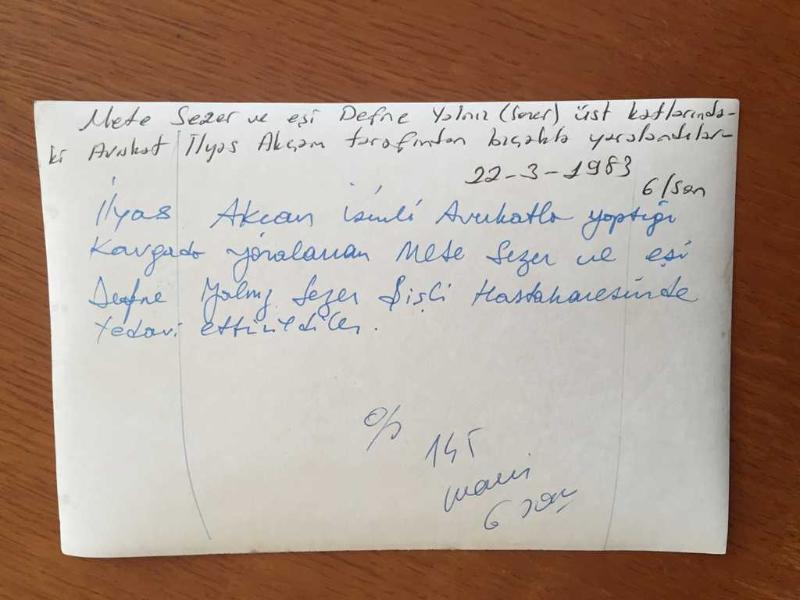 Mete Sezer ve eşi Defne Yalnız (Sezer) üst katlarında-
ki Avukat İlyas Akçam tarafından bıçakla yaralandılar-
22-3-1983
6/son
İlyas Akcan isimli Avukatla yaptığı
Kavgada yaralanan Mete Sezer ve eşi
Defne Yalnız Sezer Şişli Hastahanesinde
tedavi ettirildiler.
145
mavi
6 son